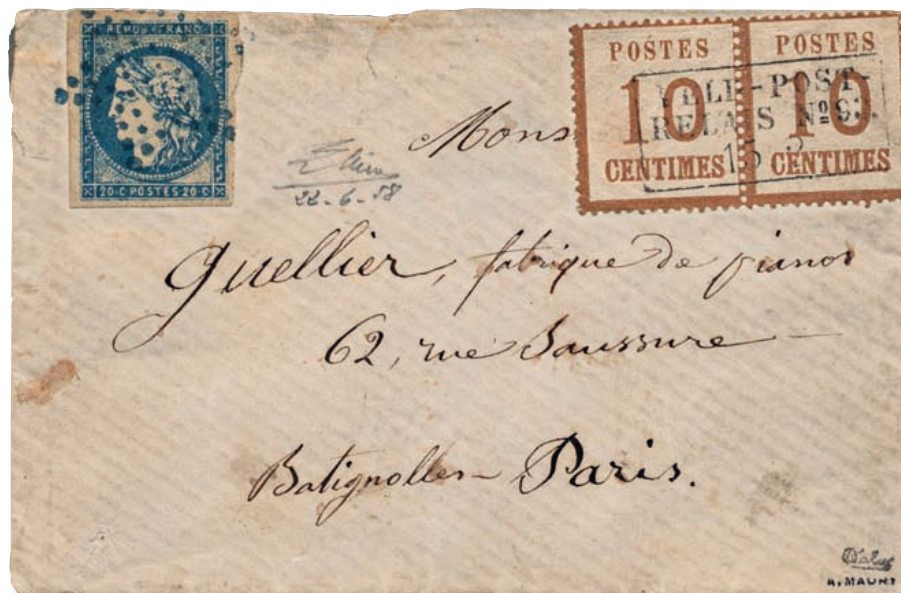 REPUB·FRANC
20·C POSTES 20·C
POSTES
10
CENTIMES
POSTES
10
CENTIMES
FELD-POST-
RELAIS Nº
22-6-58
Mons
Guellier, fabrique de pianos
62, rue Saussure
Batignolles - Paris.
A. MAURY